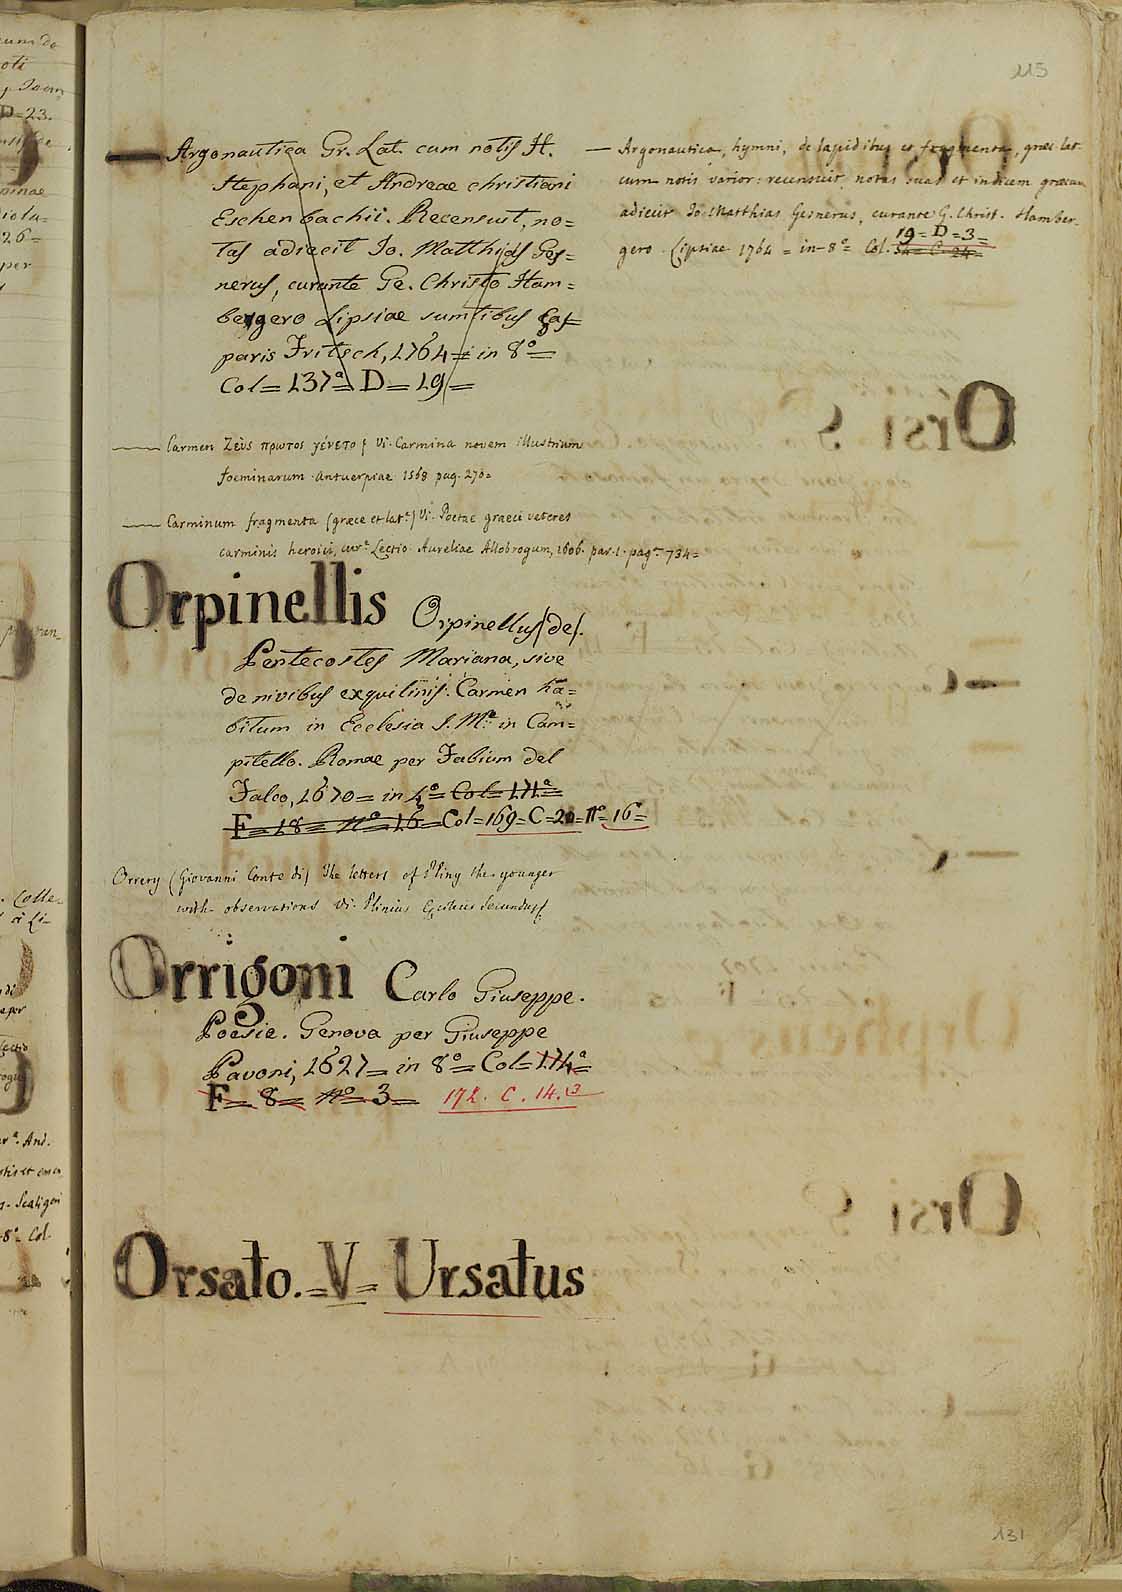 115
— Argonautica Gr. Lat. cum notis H.
Stephani, et Andreae christiani
Eschenbachii. Recensuit, no=
tas adiecit Jo. Matthias Ges=
nerus, curante Ge. Christo Ham=
bergero Lipsiae sumtibus Cas=
paris Fritsch, 1764 = in 8.º =
Col = 137ª = D = 19 =
— Carmen Ζεὺς πρωτος γένετο / Vi. Carmina novem illustrium
foeminarum. Antuerpiae 1568 pag. 270=
— Carminum fragmenta (græce et lat.e) Vi. Poetae graeci veteres
carminis heroici, cur.ª Lectio. Aureliae Allobrogum, 1606. par. 1. pag. 734=
Orpinellis Orpinellus (de).
Pentecostes Mariana, sive
de nivibus exquilinis. Carmen ha=
bitum in Ecclesia S. M.ª in Cam=
pitello. Romae per Fabium del
Falco, 1670 = in 4.º = Col = 171.ª =
F = 18 = Nº = 16 = Col = 169 = C = 20 = nº = 16 =
Orrery (Giovanni Conte di) The letters of Pliny the younger
with observations Vi. Plinius Cæcilius Secundus
Orrigoni Carlo Giuseppe.
Poesie. Genova per Giuseppe
Pavoni, 1627 = in 8.º = Col = 174.ª =
F = 8 = Nº = 3 = 172. C. 14. 13
Orsato. = V = Ursatus
— Argonautica, hymni, de lapidibus et fragmenta, græc. lat.
cum notis varior: recensuit, notas suas et indicem græcum
adiecit Jo. Matthias Gesnerus, curante G. Christ. Hamber-
19 = D = 3 =
gero. Lipsiae 1764 = in-8.º = Col. 34 = C. 24 =
131